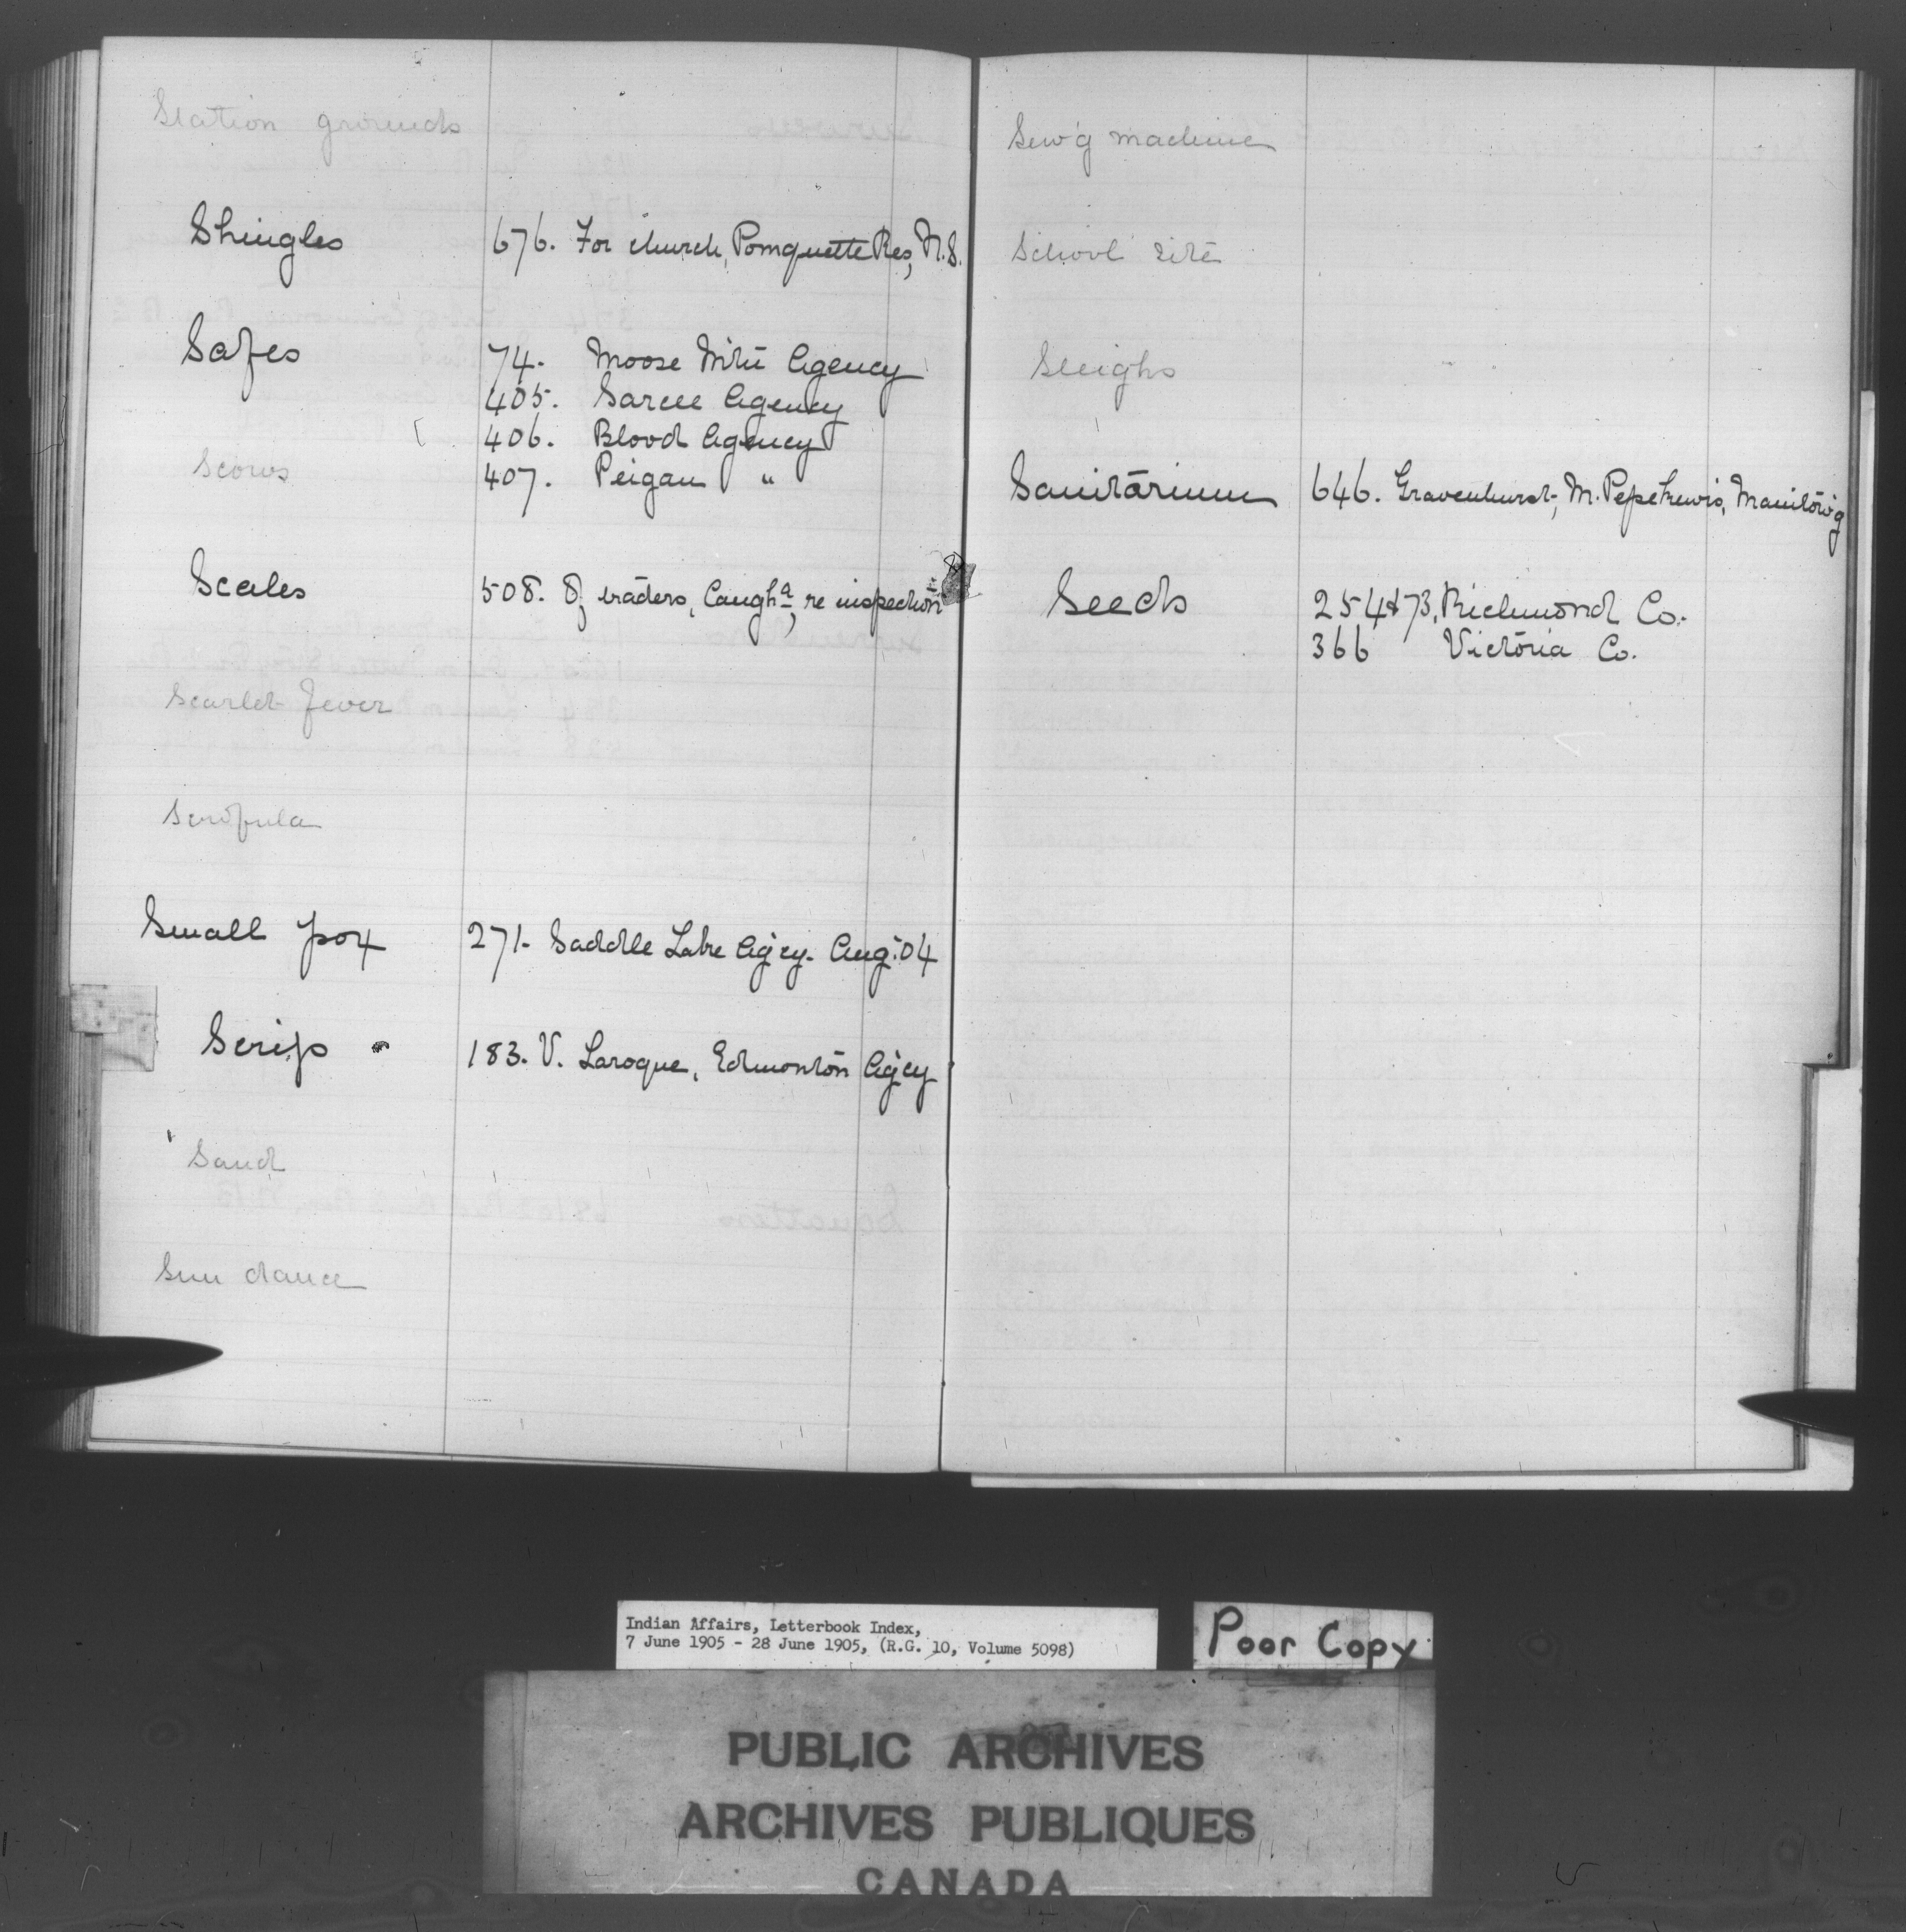 Station grounds
Shingles 676. For church, Pomquette Res, N.S.
Safes 74. Moose Mtn Agency
405. Sarcee Agency
406. Blood Agency
Scows 407. Peigan "
Scales 508. Of traders, Caugha, re inspection
Scarlet fever
Scrofula
Small pox 271. Saddle Lake Ag'cy. Aug. 04
Scrip 183. V. Laroque, Edmonton Ag'cy
Sand
Sun dance
Sew'g machine
School site
Sleighs
Sanitarium 646. Gravenhurst, M. Manitow'g
Seeds 254 & 73, Richmond Co.
366 Victoria Co.
Indian Affairs, Letterbook Index,
7 June 1905 - 28 June 1905, (R.G. 10, Volume 5098)
Poor Copy
PUBLIC ARCHIVES
ARCHIVES PUBLIQUES
CANADA